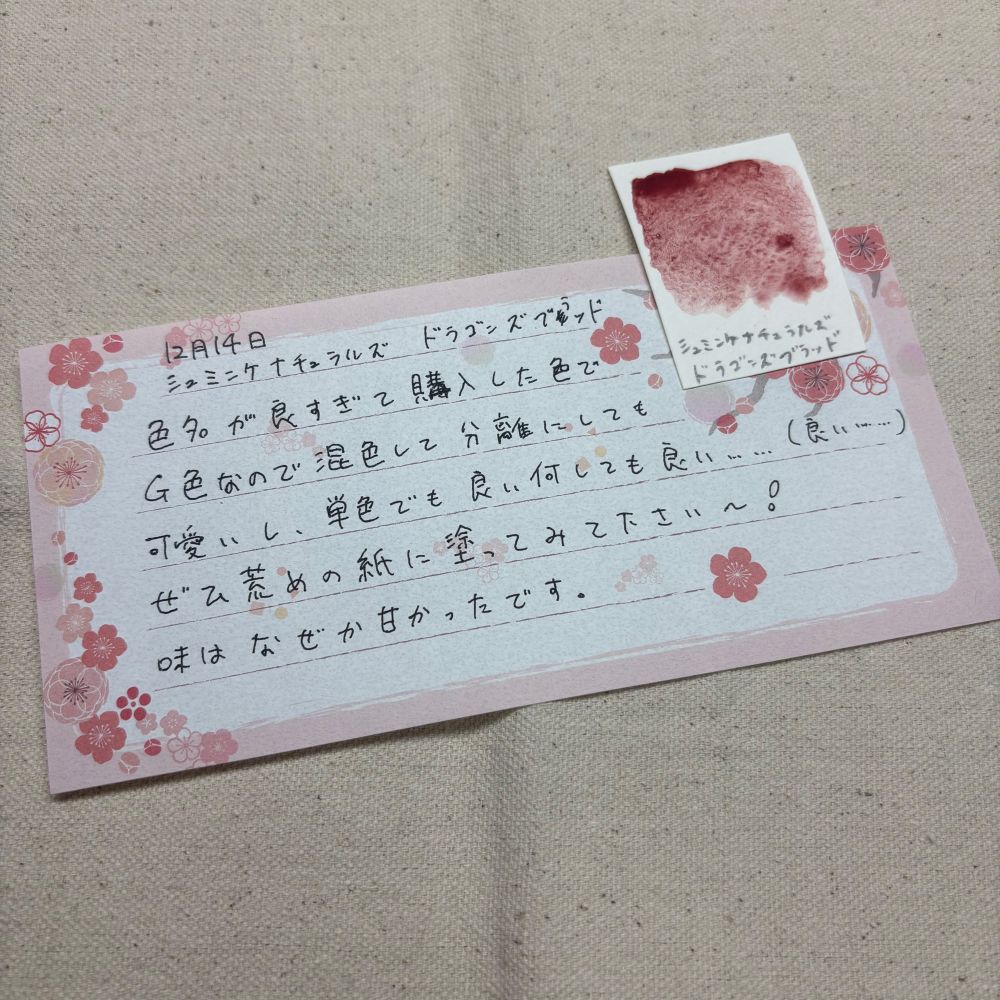 12月14日
シュミンケナチュラルズ ドラゴンズブラッド
色名が良すぎて購入した色で
G色なので混色して分離にしても
可愛いし、単色でも良い何しても良い……(良い……)
ぜひ荒めの紙に塗ってみて下さい〜!
味はなぜか甘かったです。
シュミンケナチュラルズ
ドラゴンズブラッド